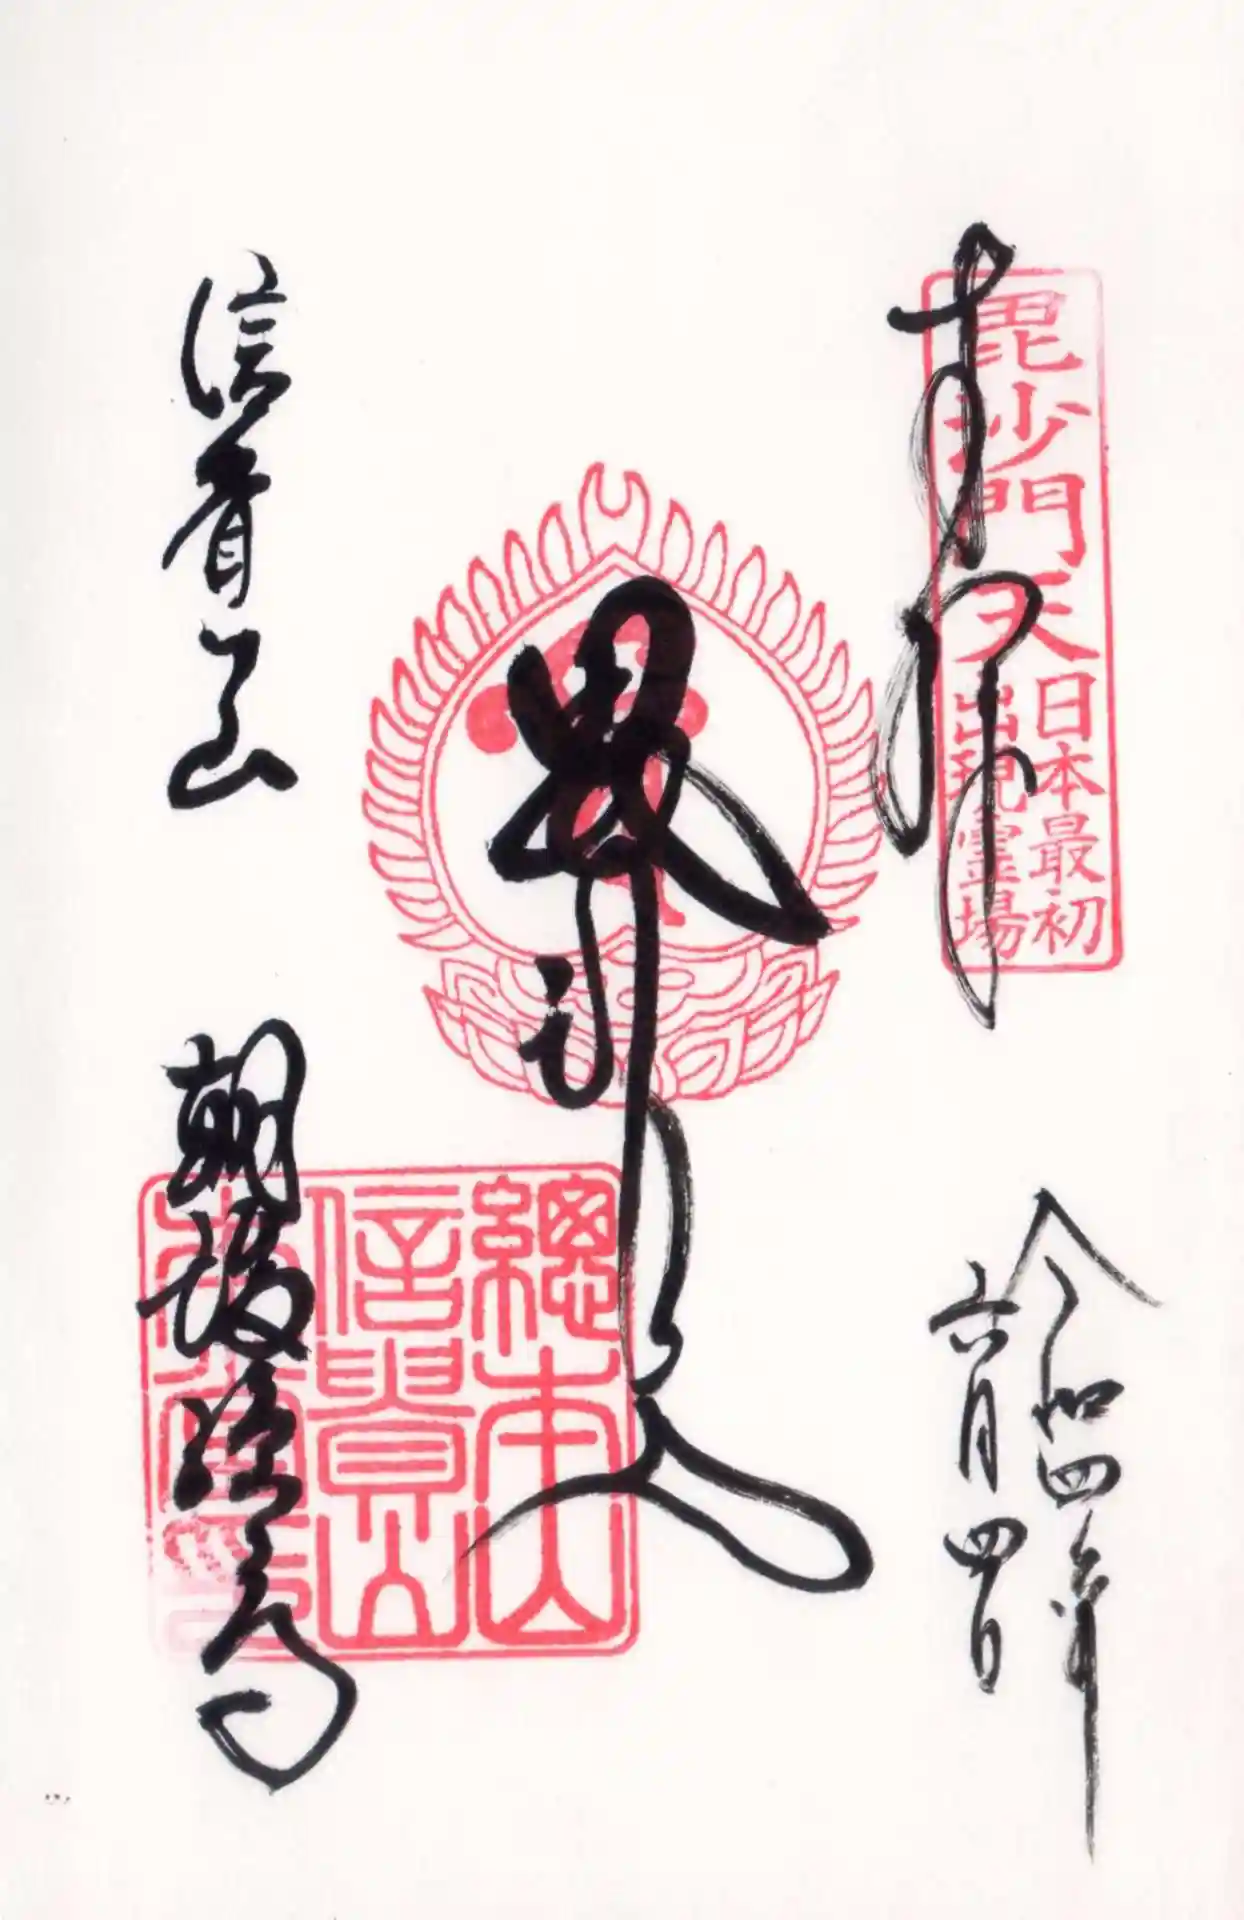 奉拝
毘沙門天
日本最初
出現霊場
令和四年
六月四日
信貴山
朝護孫子寺
總本山
信貴山